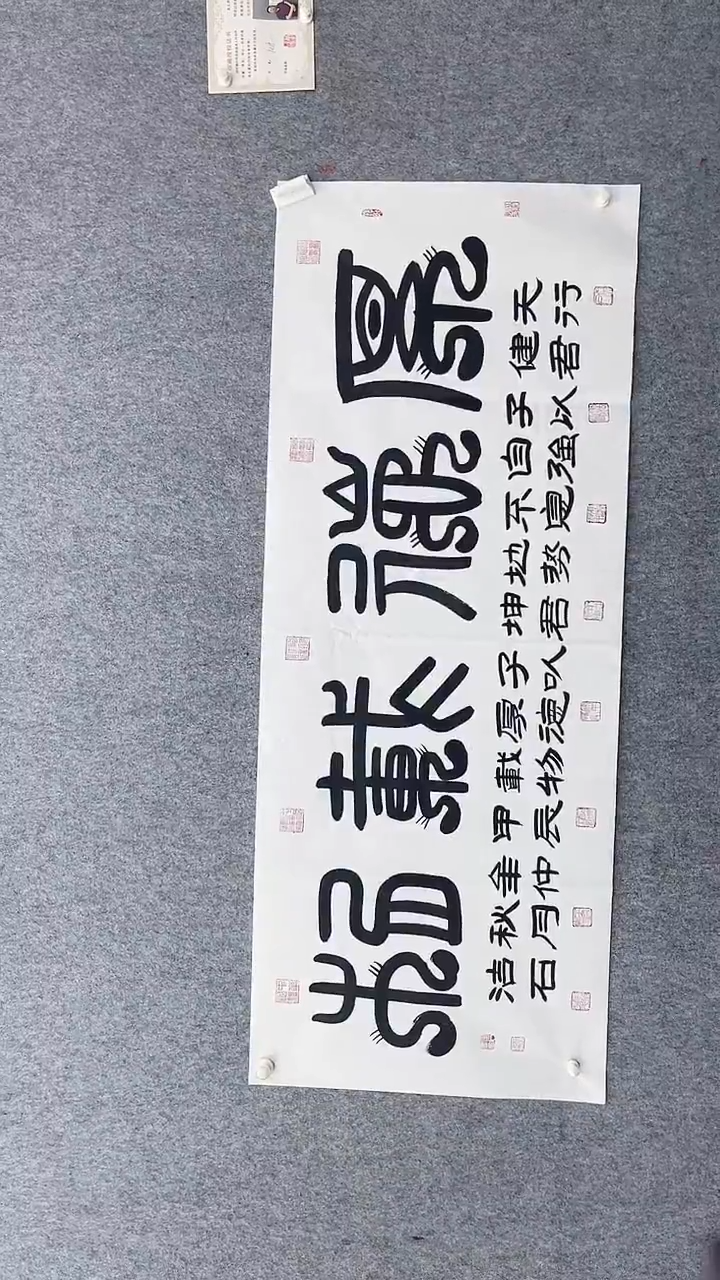 厚德載物
天行
健君
子以
自強
不息
地勢
坤君
子以
厚德
載物
甲辰
年仲
秋月
洁石